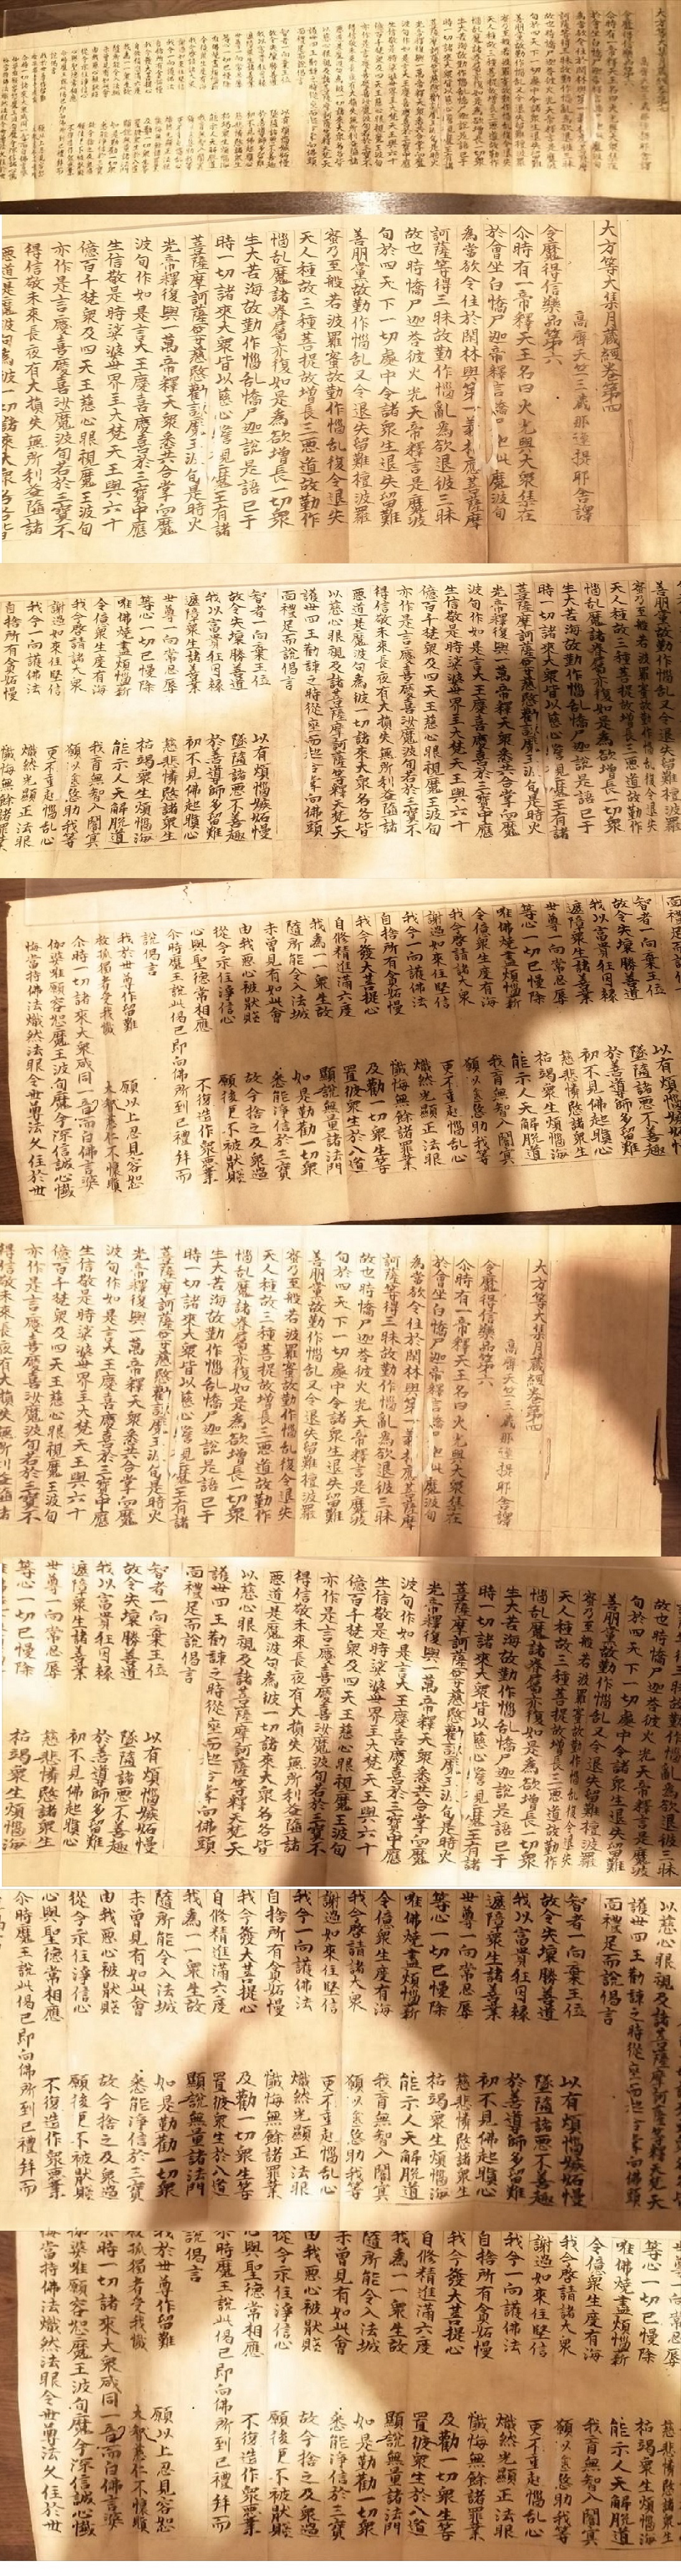 大方等大集月藏經卷第四
高齊天竺三藏那連提耶舍譯
令魔得信樂品第六
尒時有一帝釋天王名曰火光與大衆集在
於會坐白憍尸迦帝釋言憍尸迦此魔波旬
為當欲令住於閑林與第一義相應菩薩摩
訶薩等得三昧故勤作惱亂為欲退彼三昧
故也時憍尸迦荅彼火光天帝釋言是魔波
旬於四天下一切處中令諸衆生退失留難
善朋黨故勤作惱乱又令退失留難檀波羅
蜜乃至般若波羅蜜故勤作惱乱復令退失
天人種故三種菩提故增長三惡道故勤作
惱乱魔諸眷屬亦復如是為欲增長一切衆
生大苦海故勤作惱乱憍尸迦說是語已于
時一切諸來大衆皆以慈心瞻見魔王有諸
菩薩摩訶薩等慈愍勸諫魔王波旬是時火
光帝釋復與一萬帝釋天衆悉共合掌向魔
波旬作如是言大王應喜應喜於三寶中應
生信敬是時娑婆世界主大梵天王與六十
億百千梵衆及四天王慈心眼視魔王波旬
亦作是言應喜應喜汝魔波旬若於三寶不
得信敬未來長夜有大損失無所利益墮諸
惡道是魔波旬為彼一切諸來大衆各各皆
以慈心眼視及諸菩薩摩訶薩等釋天梵天
護世四王勸諫之時從座而起合掌向佛頭
面禮足而說偈言
智者一向棄王位 以有煩惱嫉妬慢
故令失壞勝善道 墜墮諸惡不善趣
我以富貴狂因緣 於善導師多留難
遮障衆生諸善業 初不見佛起瞋心
世尊一向常忍辱 慈悲憐愍諸衆生
等心一切已慢除 枯竭衆生煩惱海
唯佛燒盡煩惱薪 能示人天解脫道
令億衆生度有海 我盲無智入闇冥
我今啓請諸大衆 願以慈愍助我等
謝過如來住堅信 更不重起惱乱心
我今一向護佛法 熾然光顯正法眼
自捨所有貪妬慢 懺悔無餘諸罪業
我今發大菩提心 及勸一切衆生等
自修精進滿六度 置彼衆生於八道
我為一一衆生故 顯說無量諸法門
隨所能令入法城 如是勤勸一切衆
未曾見有如此會 悉能淨信於三寶
由我惡心被猒賤 故今捨之及衆過
從今永住淨信心 願後更不被猒賤
心與聖德常相應 不復造作衆惡業
尒時魔王說此偈已即向佛所到已禮拜而
說偈言
我於世尊作留難 願以上忍見容恕
救孤獨者受我懺 大智慈仁不懷瞋
尒時一切諸來大衆咸同一音而白佛言婆
伽婆唯願容恕魔王波旬魔今深信誠心懺
悔當持佛法熾然法眼令世尊法久住於世